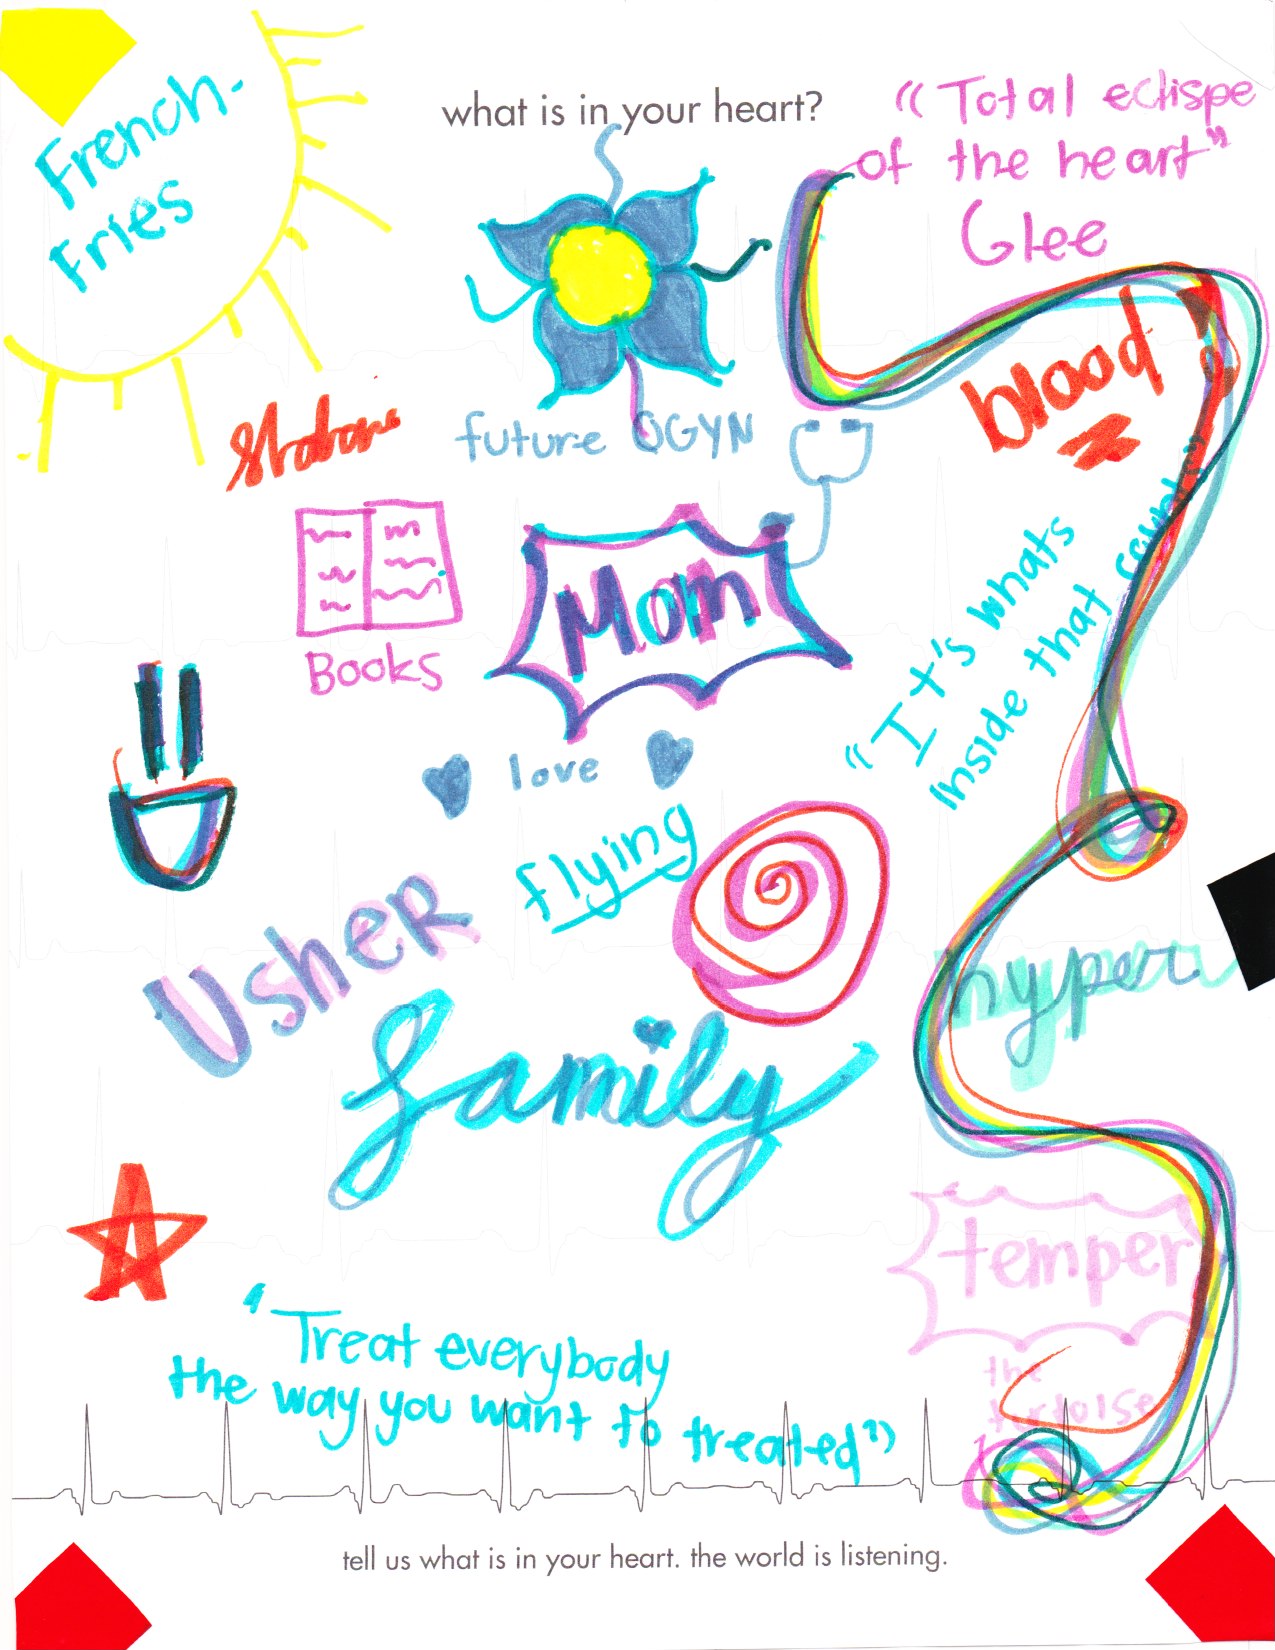 what is in your heart?
French-
Fries
“Total eclispe
of the heart”
Glee
blood
future OGYN
Books
Mom
“It's whats
inside that counts
love
flying
Usher
hyper
family
temper
the
tortoise
“Treat everybody
the way you want to treated”
tell us what is in your heart. the world is listening.